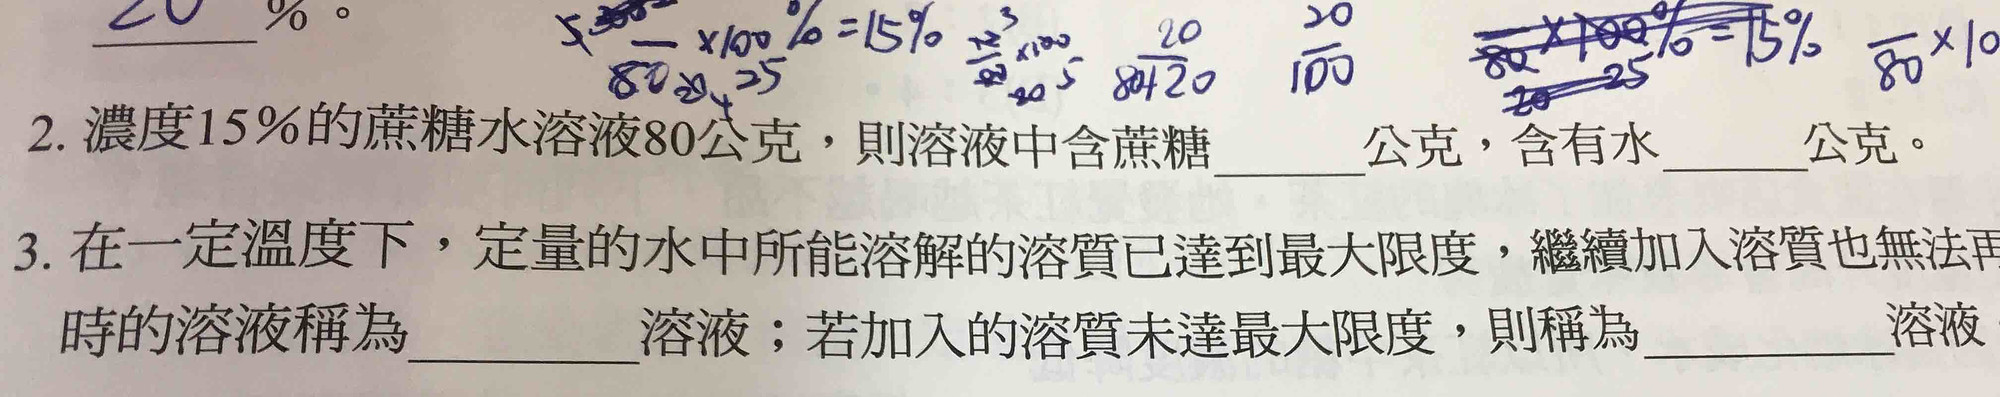 20 %。
80 ×100%=15% 20 20 ×100%=15% ×10
25 80+20 100 80
2. 濃度15%的蔗糖水溶液80公克，則溶液中含蔗糖______公克，含有水______公克。
3. 在一定溫度下，定量的水中所能溶解的溶質已達到最大限度，繼續加入溶質也無法再
時的溶液稱為______溶液；若加入的溶質未達最大限度，則稱為______溶液